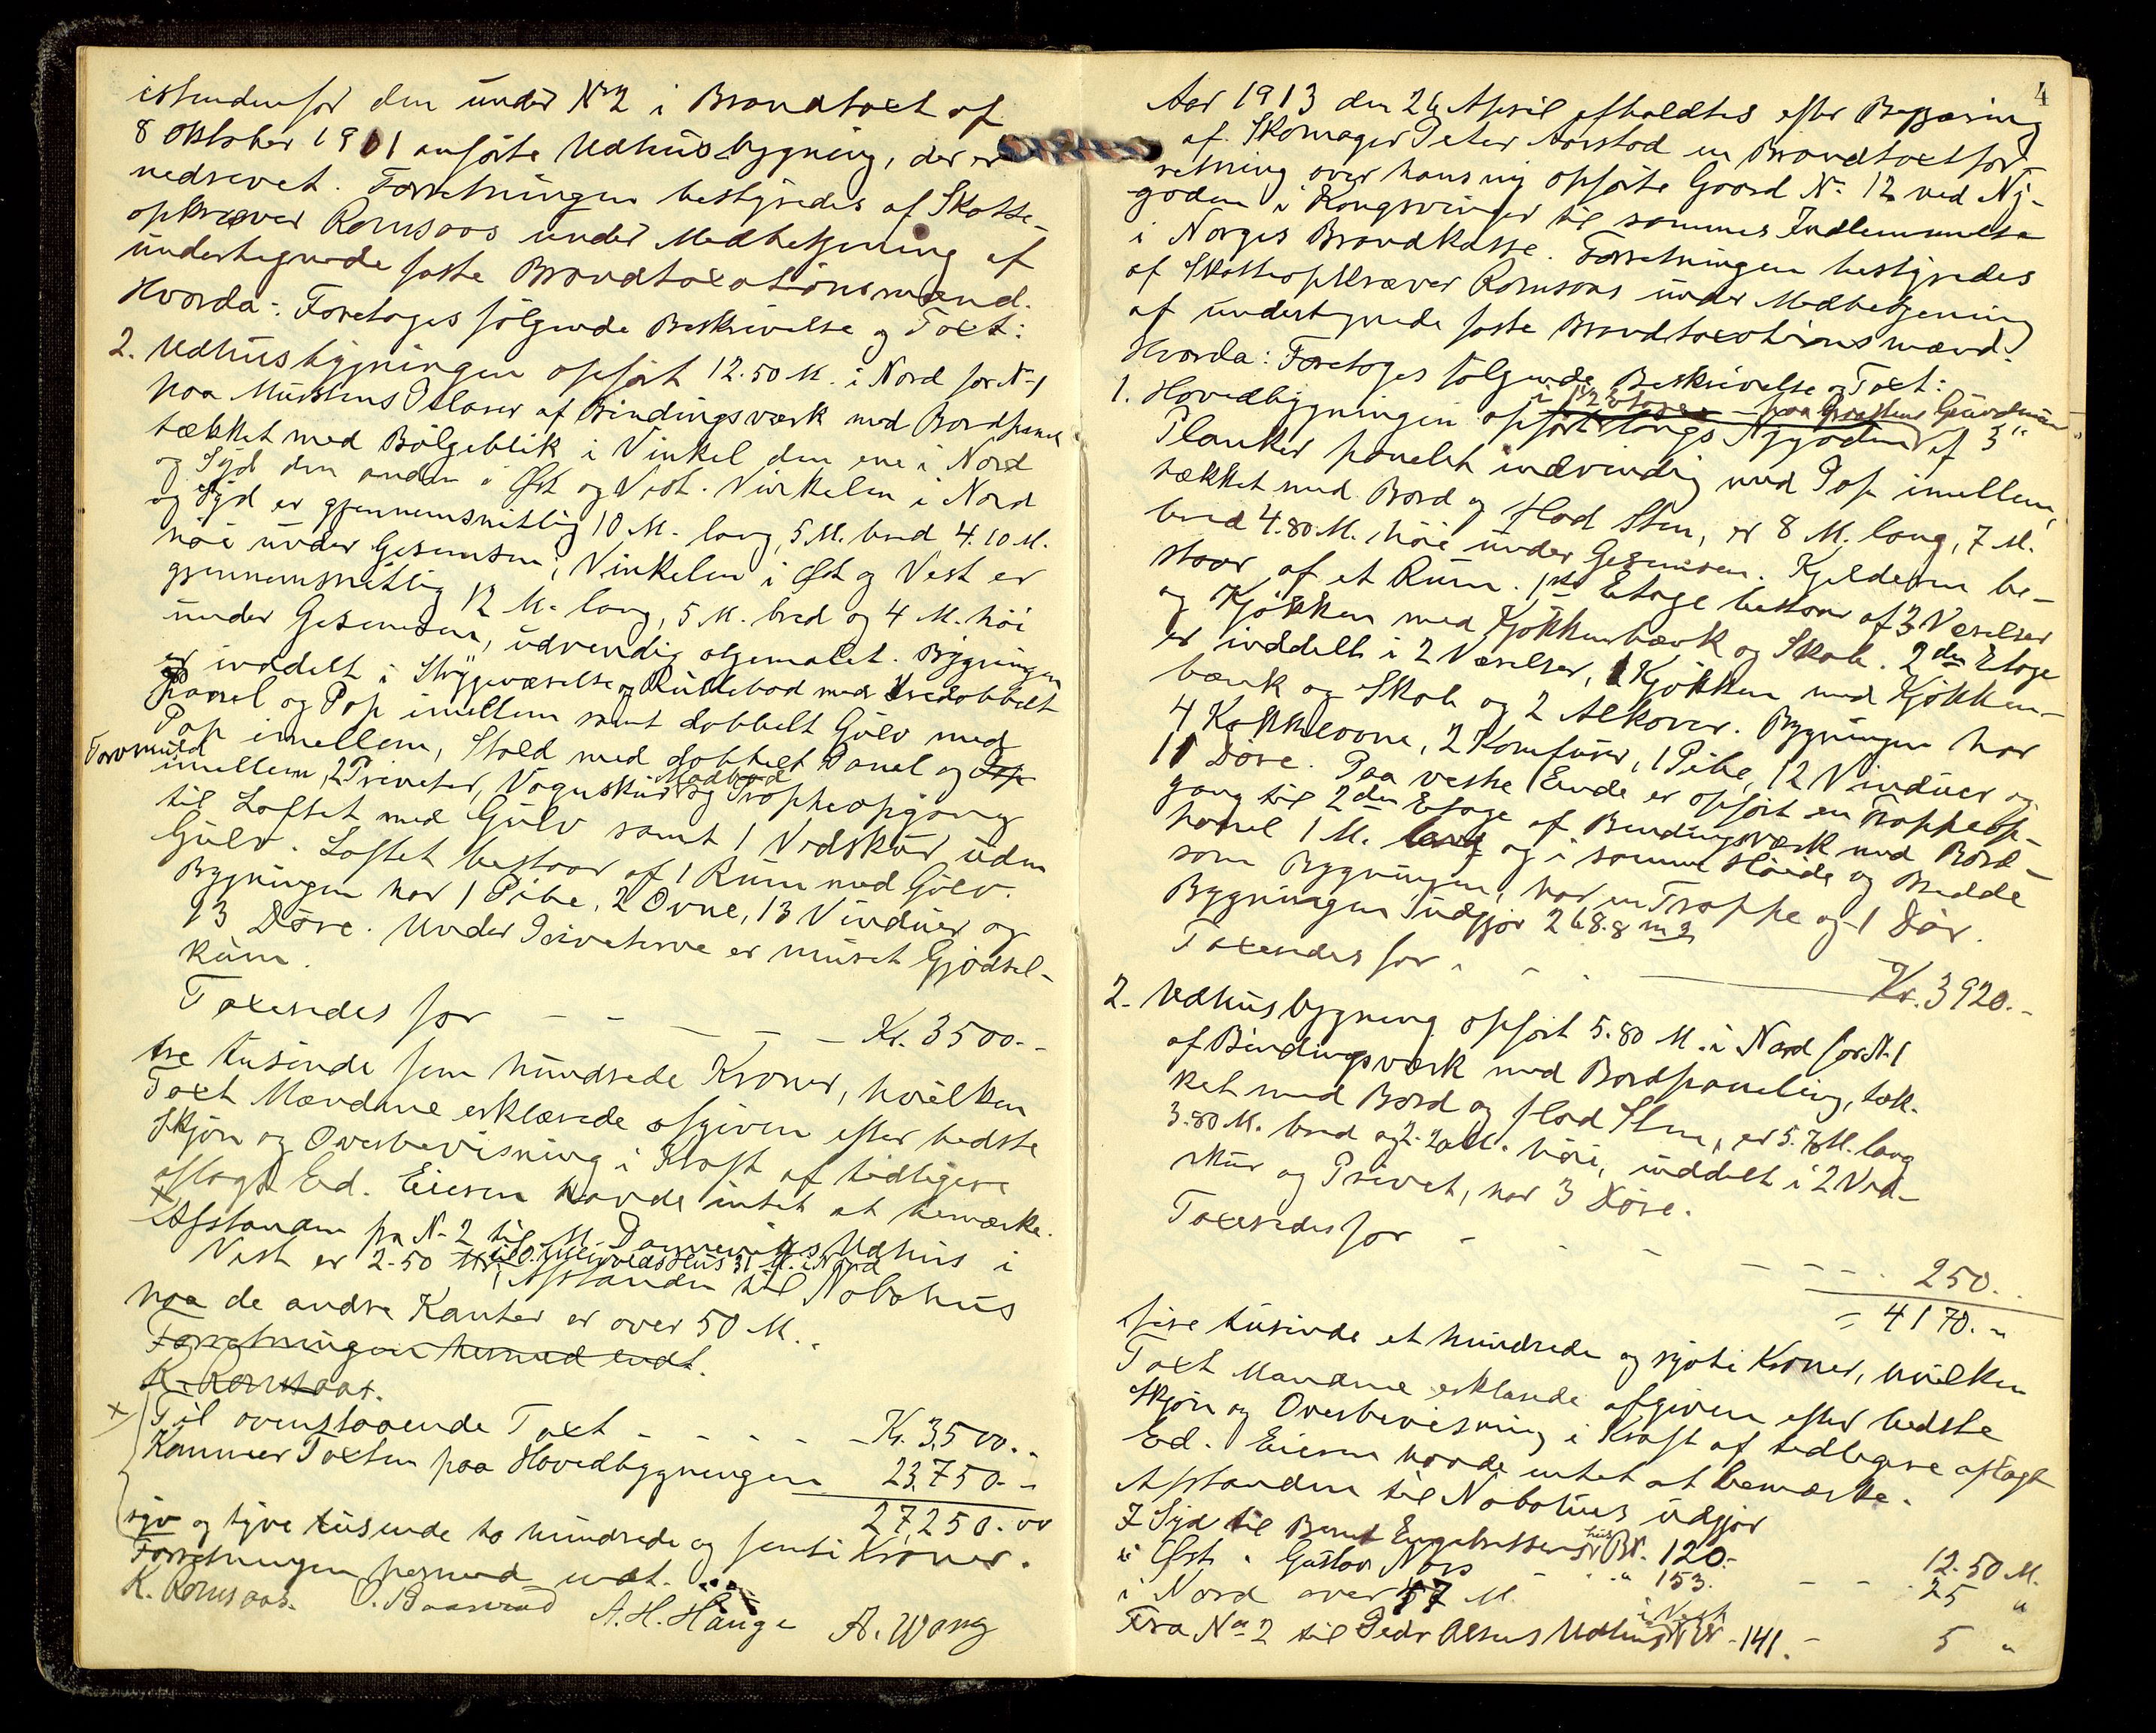 istedenfor den under No 2 i Brandtaxt af
8 Oktober 1901 anførte Udhusbygning, der er
nedrevet. Forretningen bestyredes af Skatte-
opkræver Romsaas under Medbetjening af
undertegnede faste Brandtaxationsmænd.
Hvorda: Foretoges følgende Beskrivelse og Taxt:
2. Udhusbygningen opført 12.50 M. i Nord for No 1
paa Murstens Pilarer af Bindingsværk med Bordpanel
tækket med Bølgeblik i Vinkel den ene i Nord
og Syd den anden i Øst og Vest. Vinkelen i Nord
og Syd er gjennemsnitlig 10 M. lang, 5 M. bred 4.10 M.
høi under Gesemsen, Vinkelen i Øst og Vest er
gjennemsnitlig 12 M. lang, 5 M. bred og 4 M. høi
under Gesemsen, udvendig oljemalet. Bygningen
er inddelt i Strygeværelse og Rullebod med tredobbelt
Panel og Pap imellem samt dobbelt Gulv med
Pap imellem, Stald med dobbelt Panel og Pap
Torvmuld
imellem, 2 Priveter, Vognskur Madbod og Trappeopgang
til Loftet med Gulv samt 1 Vedskur uden
Gulv. Loftet bestaar af 1 Rum med Gulv.
Bygningen har 1 Pibe, 2 Ovne, 13 Vinduer og
13 Døre. Under Priveterne er muret Gjødsel-
kum.
Taxeredes for - - - - - Kr. 3500.-
tre tusinde fem hundrede Kroner, hvilken
Taxt Mændene erklærede afgiven efter bedste
Skjøn og Overbevisning i Kraft af tidligere
aflagt Ed. Eieren havde intet at bemærke.
x Afstanden fra No 2 til M. Udhus i
Vest er 2.50 M. Hus 31 M. i Nord
Afstanden til Nabohus
paa de andre Kanter er over 50 M.
Forretningen hermed endt.
K. Romsaas.
x Til ovenstaaende Taxt - - - - - Kr. 3,500.-
Kommer Taxten paa Hovedbygningen 23,750.-
27,250.00
syv og tyve tusende to hundrede og femti Kroner.
Forretningen hermed endt.
K. Romsaas. O. Baasrud A. H. Hauge A. Wang
4
Aar 1913 den 26 April afholdtes efter Begjæring
af Skomager Peter Aarstad en Brandtaxtfor-
retning over hans ny opførte Gaard No 12 ved Ny-
gaden i Kongsvinger til sammes Indlemmelse
i Norges Brandkasse. Forretningen bestyredes
af Skatteopkræver Romsaas under Medbetjening
af undertegnede faste Brandtaxationsmænd.
Hvorda: Foretoges følgende Beskrivelse og Taxt:
i 1 1/2 Etager - paa Graastens Grundmur
1. Hovedbygningen opført langs Nygaden af 3"
Planker panelet indvendig med Pap imellem,
tækket med Bord og flad Sten, er 8 M. lang, 7 M.
bred 4.80 M. høi under Gesemsen. Kjelderen be-
staar af et Rum. 1ste Etage bestaar af 3 Værelser
og Kjøkken med Kjøkkenbænk og Skab. 2den Etage
er inddelt i 2 Værelser, 1 Kjøkken med Kjøkken-
bænk og Skab og 2 Alkover. Bygningen har
4 Kakkelovne, 2 Komfurer, 1 Pibe, 12 Vinduer og
11 Døre. Paa vestre Ende er opført en Trappeop-
gang til 2den Etage af Bindingsværk med Bord-
panel 1 M. lang og i samme Høide og Bredde
som Bygningen, har en Trappe og 1 Dør.
Bygningen udgjør 268.8 m3
Taxeredes for - - - Kr. 3920.-
2. Udhusbygning opført 5.80 M. i Nord for No 1
af Bindingsværk med Bordpaneling, tæk-
ket med Bord og flad Sten, er 5.70 M. lang
3.80 M. bred og 2.20 M. høi, inddelt i 2 Ved-
skur og Privet, har 3 Døre.
Taxeredes for - - - - - - - 250.-
= 4170.-
fire tusinde et hundrede og sytti Kroner, hvilken
Taxt Mændene erklærede afgiven efter bedste
Skjøn og Overbevisning i Kraft af tidligere aflagt
Ed. Eieren havde intet at bemærke.
Afstanden til Nabohus udgjør
I Syd til Bernt Engebretsens hus Br. No 120.- 12.50 M.
i Øst " Gustav Nårs - - " 153. - - 25 "
i Nord over 57 M.
Fra No 2 til Peder Olsens Udhus i Vest Br. No - 141. - 5 "